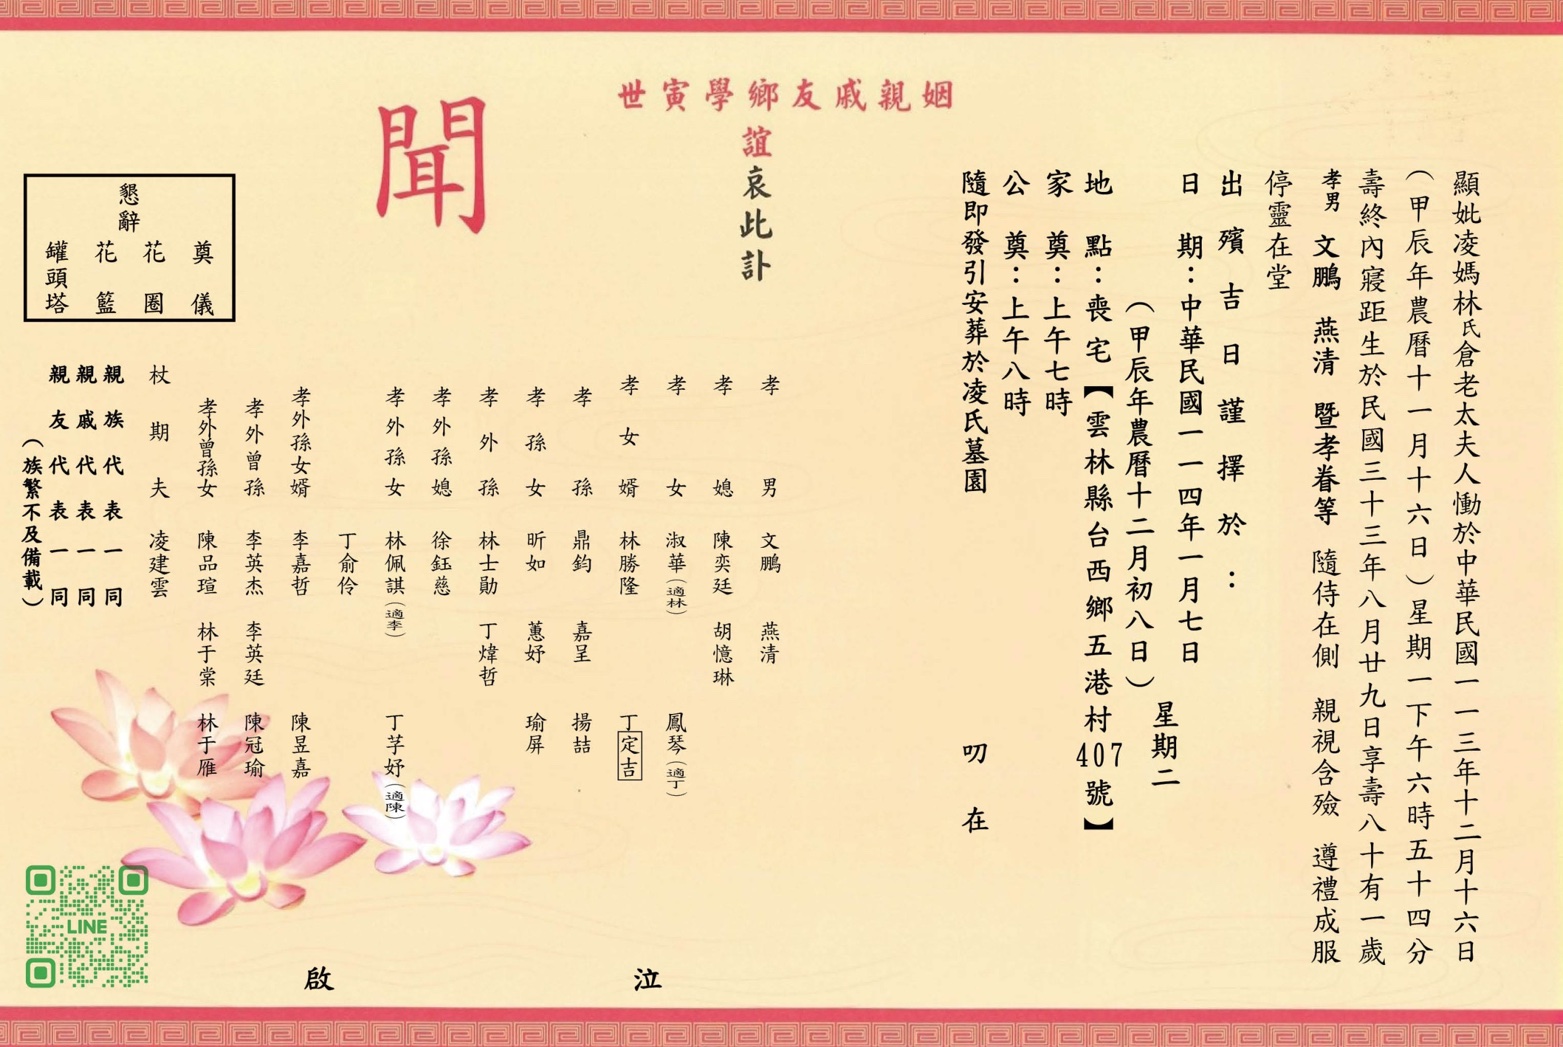 顯妣凌媽林氏倉老太夫人慟於中華民國一一三年十二月十六日
（甲辰年農曆十一月十六日）星期一下午六時五十四分
壽終內寢距生於民國三十三年八月廿九日享壽八十有一歲
孝男 文鵬 燕清 暨孝眷等 隨侍在側 親視含殮 遵禮成服
停靈在堂
出殯吉日謹擇於：
日期：中華民國一一四年一月七日
（甲辰年農曆十二月初八日）
星期二
地點：喪宅【雲林縣台西鄉五港村407號】
家奠：上午七時
公奠：上午八時
隨即發引安葬於凌氏墓園
叨在
姻親戚友鄉學寅世
誼哀此訃
聞
孝男 文鵬 燕清
孝媳 陳奕廷 胡憶琳
孝女 淑華（適林） 鳳琴（適丁）
孝女婿 林勝隆 丁定吉
孝孫 鼎鈞 嘉呈 揚喆
孝孫女 昕如 蕙妤 瑜屏
孝外孫 林士勛 丁煒哲
孝外孫媳 徐鈺慈
孝外孫女 林佩諆（適李） 丁芓妤（適陳）
丁俞伶
孝外孫女婿 李嘉哲 陳昱嘉
孝外曾孫 李英杰 李英廷 陳冠瑜
孝外曾孫女 陳品瑄 林于棠 林于雁
杖期夫 凌建雲
親族代表一同
親戚代表一同
親友代表一同
（族繁不及備載）
泣
啟
懇辭
奠儀
花圈
花籃
罐頭塔
LINE